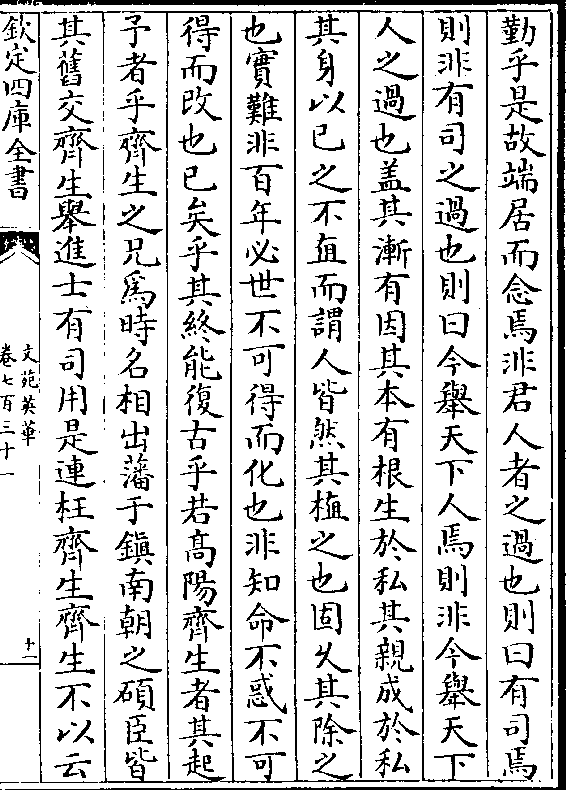 勤乎是故端居而念焉非君人者之過也則曰有司焉
則非有司之過也則曰今舉天下人焉則非今舉天下
人之過也盖其漸有因其本有根生於私其親成於私
其身以已之不直而謂人皆然其植之也固乆其除之
也實難非百年必世不可得而化也非知命不惑不可
得而改也已矣乎其終能復古乎若髙陽齊生者其起
予者乎齊生之兄爲時名相出藩于鎭南朝之碩臣皆
其舊交齊生舉進士有司用是連枉齊生齊生不以云
欽定四庫全書
文苑英華
卷七百三十一
十一